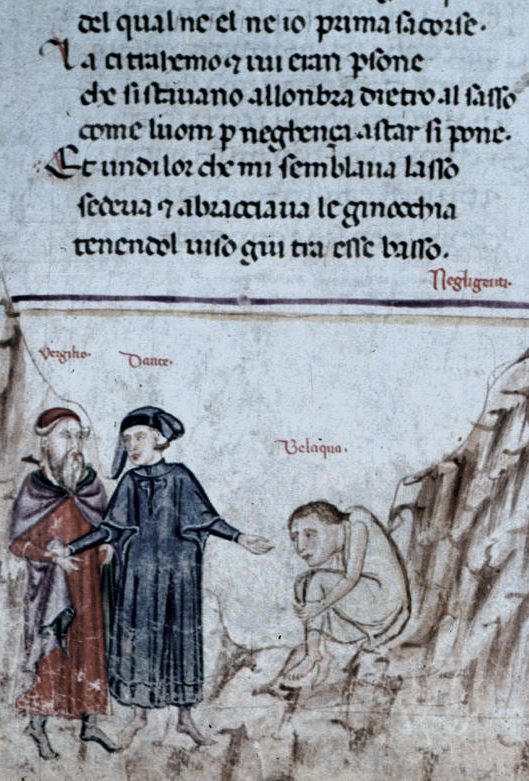 del qual ne el ne io prima sacorse.
La ci trahemo ⁊ iui eran psone
che si stauano allonbra dietro al sasso
come luom p neghença astar si pone.
Et un di lor che mi semblaua lasso
sedeua ⁊ abracciaua le ginocchia
tenendol uiso giu tra esse basso.
Negligenti.
Vergilio. Dante.
Belaqua.